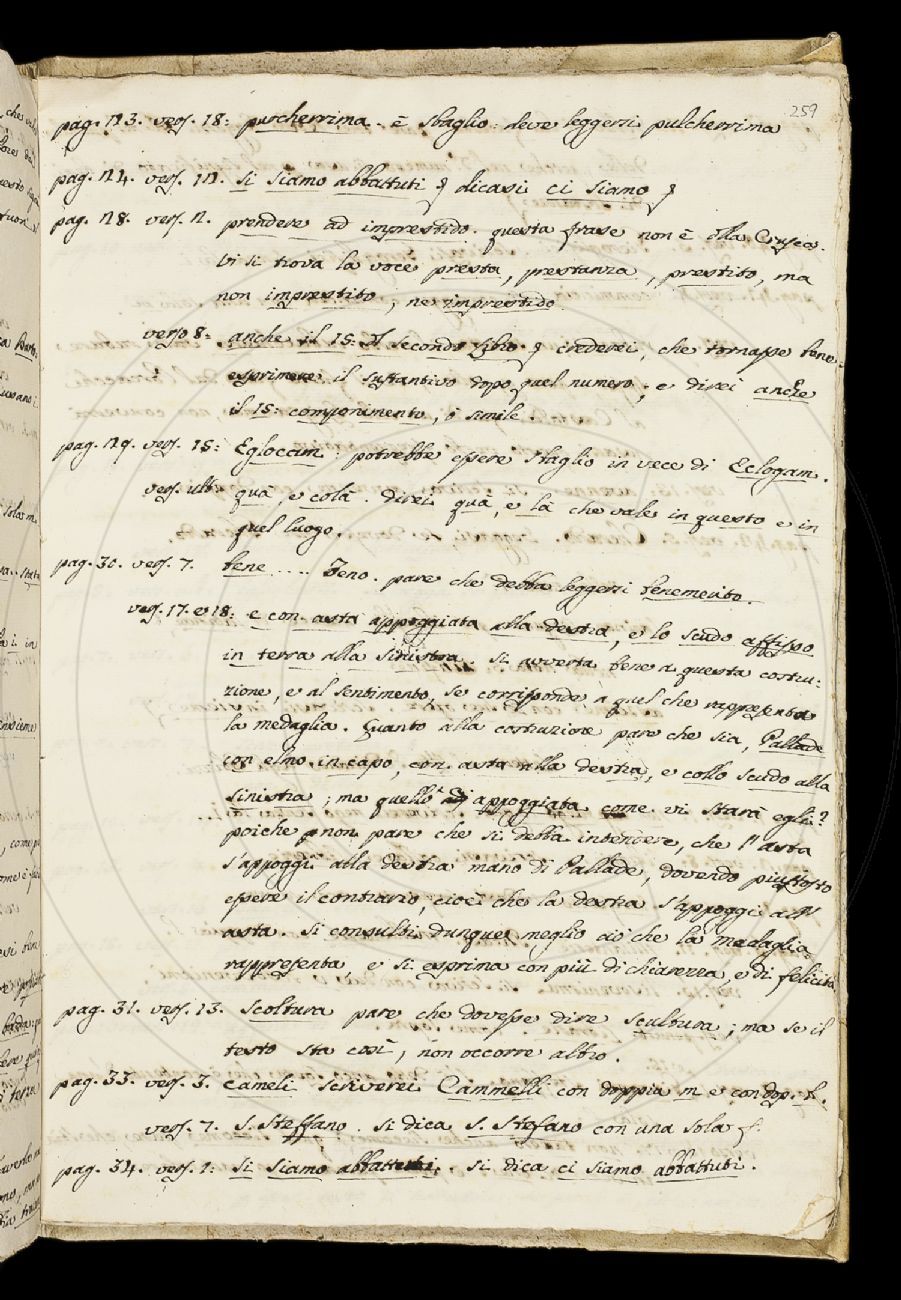 259
pag. 123. vers. 18: purcherrima. è sbaglio: deve leggersi pulcherrima
pag. 124. vers. 12. si siamo abbattuti § dicasi ci siamo §
pag. 128. vers. 2. prendere ad imprestido. questa frase non è della Crusca.
Vi si trova la voce presta, prestanza, prestito, ma
non imprestito, ne imprestido
verso 8: anche il 15: Il secondo Libro § crederei, che tornasse bene
esprimere il sustantivo dopo quel numero; e direi anche
il 15: componimento, o simile.
pag. 129. vers. 15: Egloccam: potrebbe essere sbaglio in vece di Eclogam.
vers. ult: quà, e colà. direi quà, e là che vale in questo e in
quel luogo.
pag. 30. vers. 7. bene .... pare che debba leggersi benemerito.
vers. 17. e 18: e con asta appoggiata alla destra, e lo scudo affisso
in terra alla sinistra. si averta bene a questa costru:
zione, e al sentimento, se corrisponde a quel che rappresenta
la medaglia. Quanto alla costruzione pare che sia, Pallade
con elmo in capo, con asta alla destra, e collo scudo alla
sinistra; ma quell'a appoggiata come vi starà egli?
poiche non pare che si debba intendere, che l'asta
s'appoggi alla destra mano di Pallade, dovendo piuttosto
essere il contrario, cioè che la destra s'appoggi all'
asta. si consulti dunque meglio ciò che la medaglia
rappresenta, e si esprima con più di chiarezza, e di felicità
pag. 31. vers. 13. Scoltura pare che dovesse dire scultura; ma se il
testo sta così, non occorre altro.
pag. 33. vers. 3. Cameli scriverei Cammelli con doppia m e con dop. l.
vers. 7. S. Steffano. si dica S. Stefano con una sola f.
pag. 34. vers. 1: Si siamo abbattuti. si dica ci siamo abbattuti.